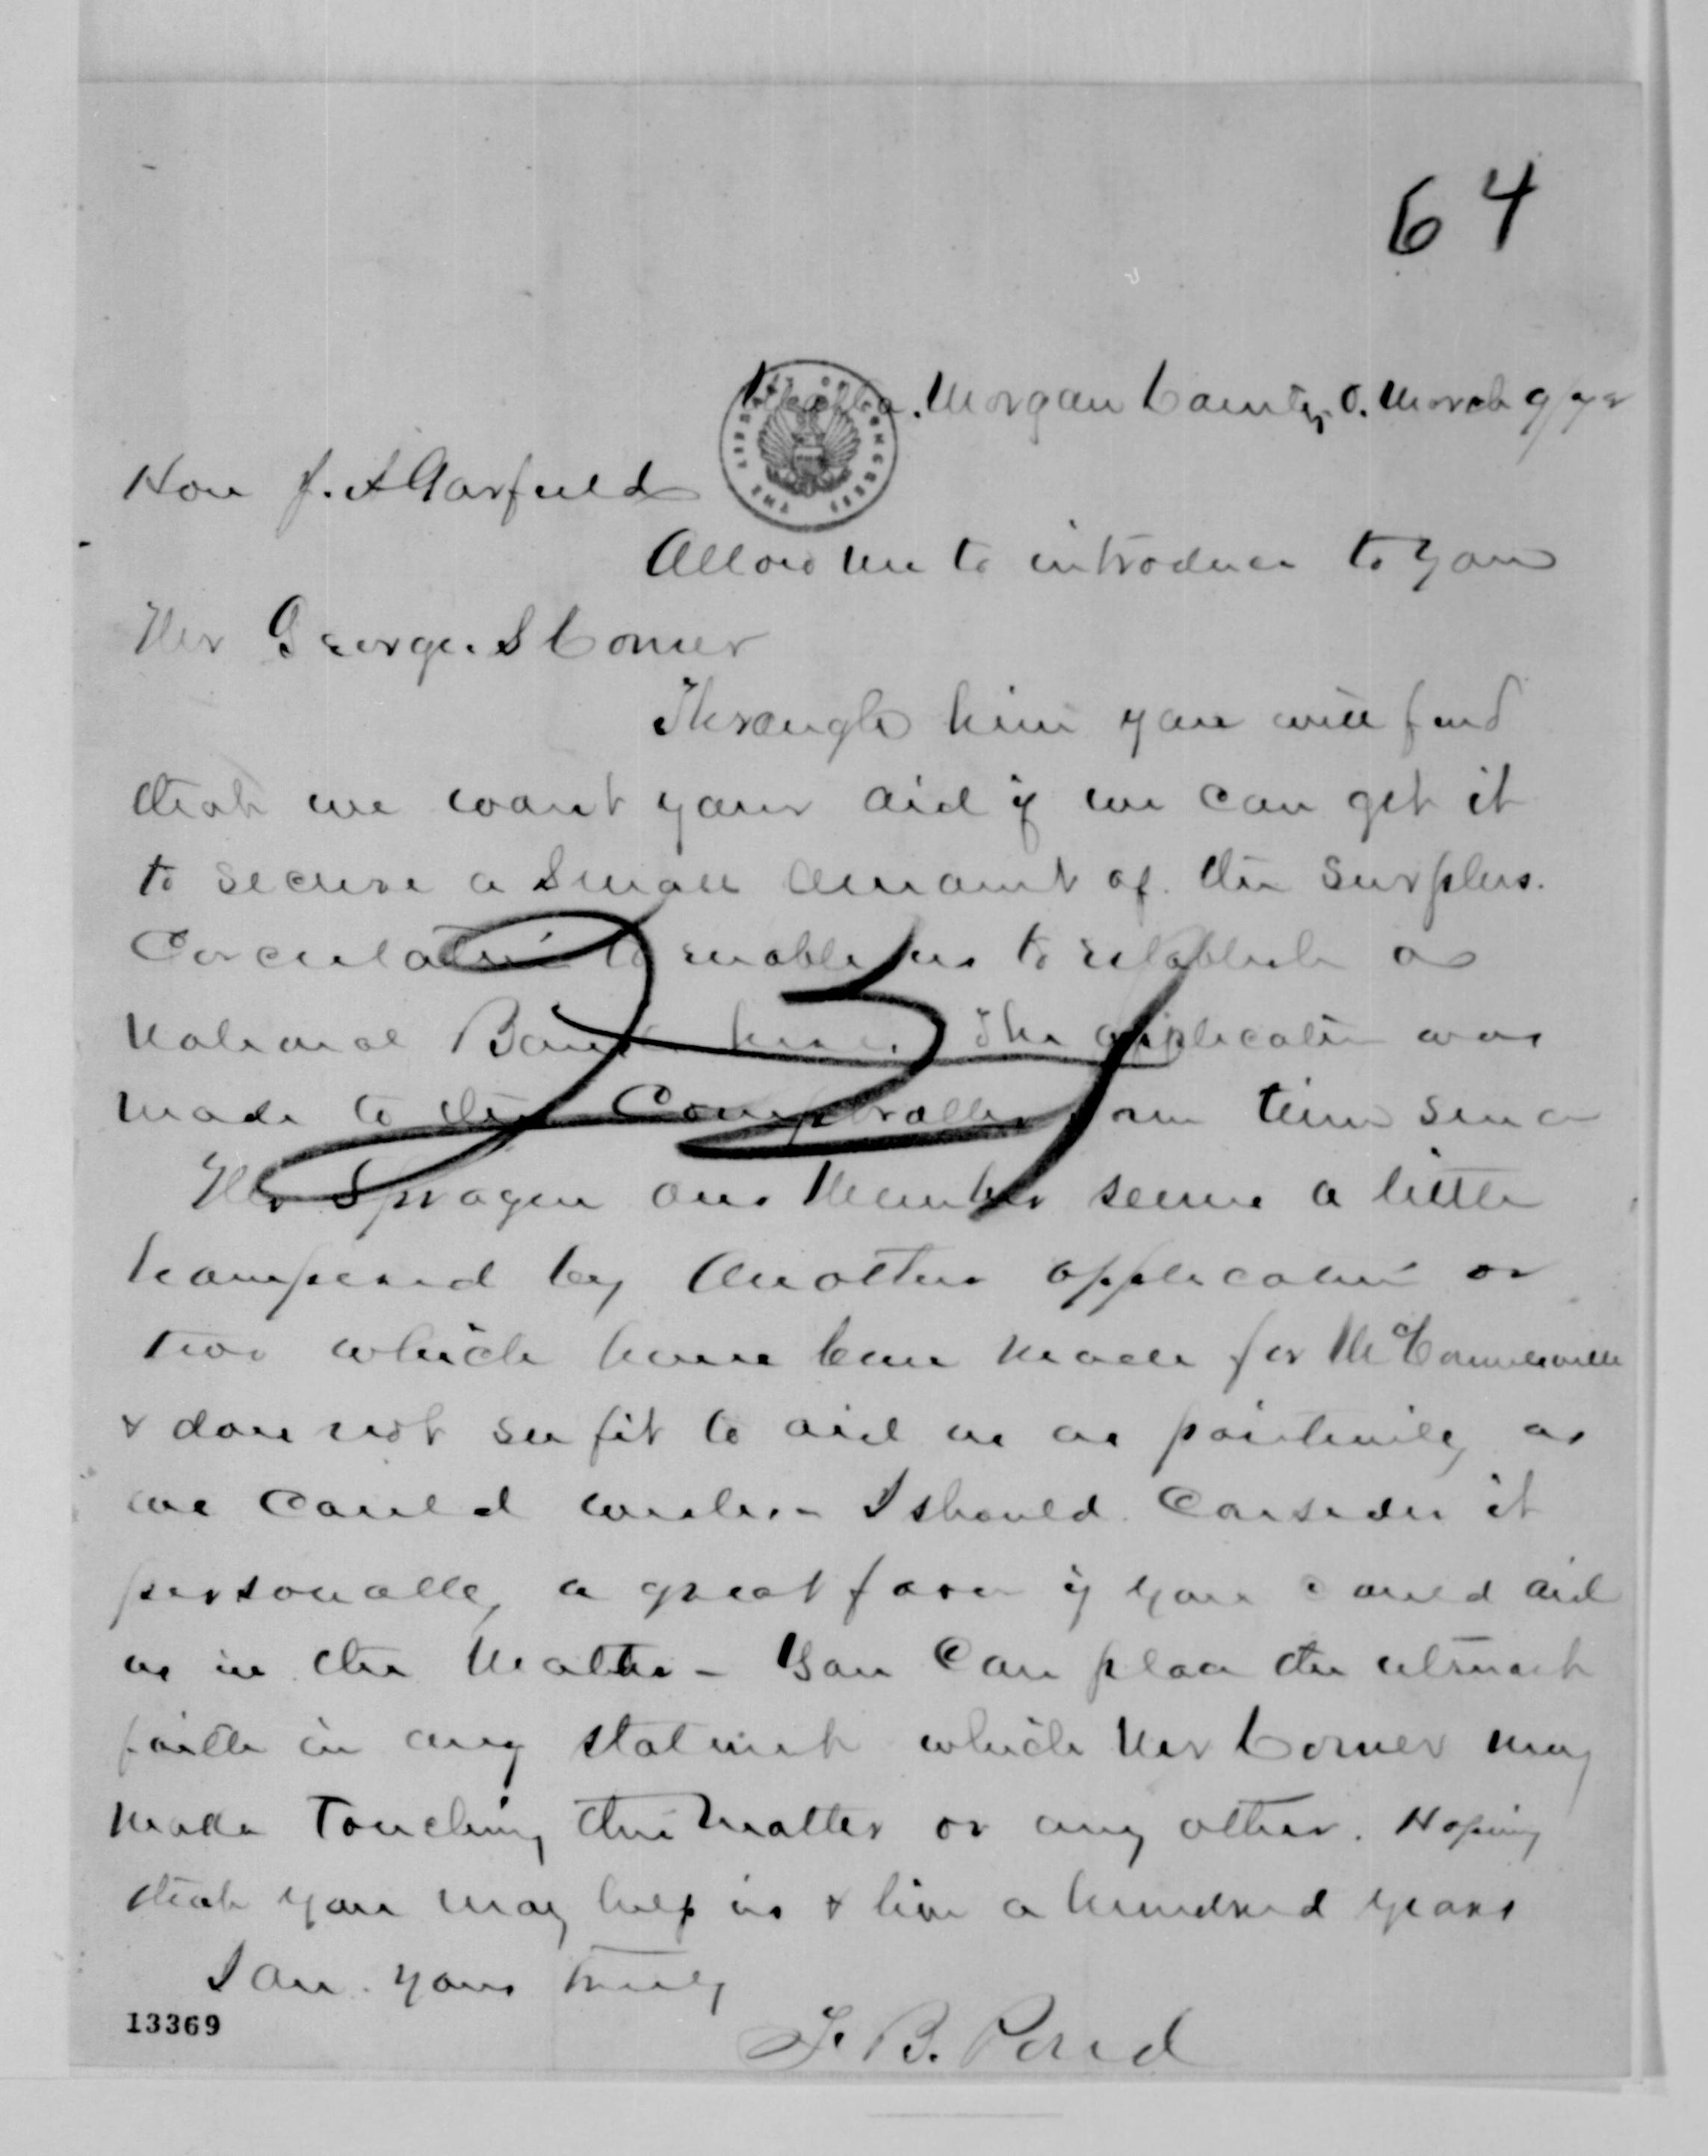 64
Malta. Morgan County, O. March 9/72
Hon J. A Garfield
Allow me to introduce to you
Mr George S Corner
Through him you will find
that we want your aid if we can get it
to secure a small amount of the surplus.
Circulation to enable us to establish a
National Bank here. The application was
made to the Comptroller some time since
Mr Sprague our Member seems a little
hampered by another application or
two which have been made for McConnelsville
& does not see fit to aid us as pointedly as
we could wish. - I should Consider it
personally a great favor if you could aid
us in the Matter - You Can place the utmost
faith in any statement which Mr Corner may
make Touching this Matter or any other. Hoping
that you may help us & live a hundred years
I am. yours truly
F. B. Pond
23/
THE LIBRARY OF CONGRESS
13369